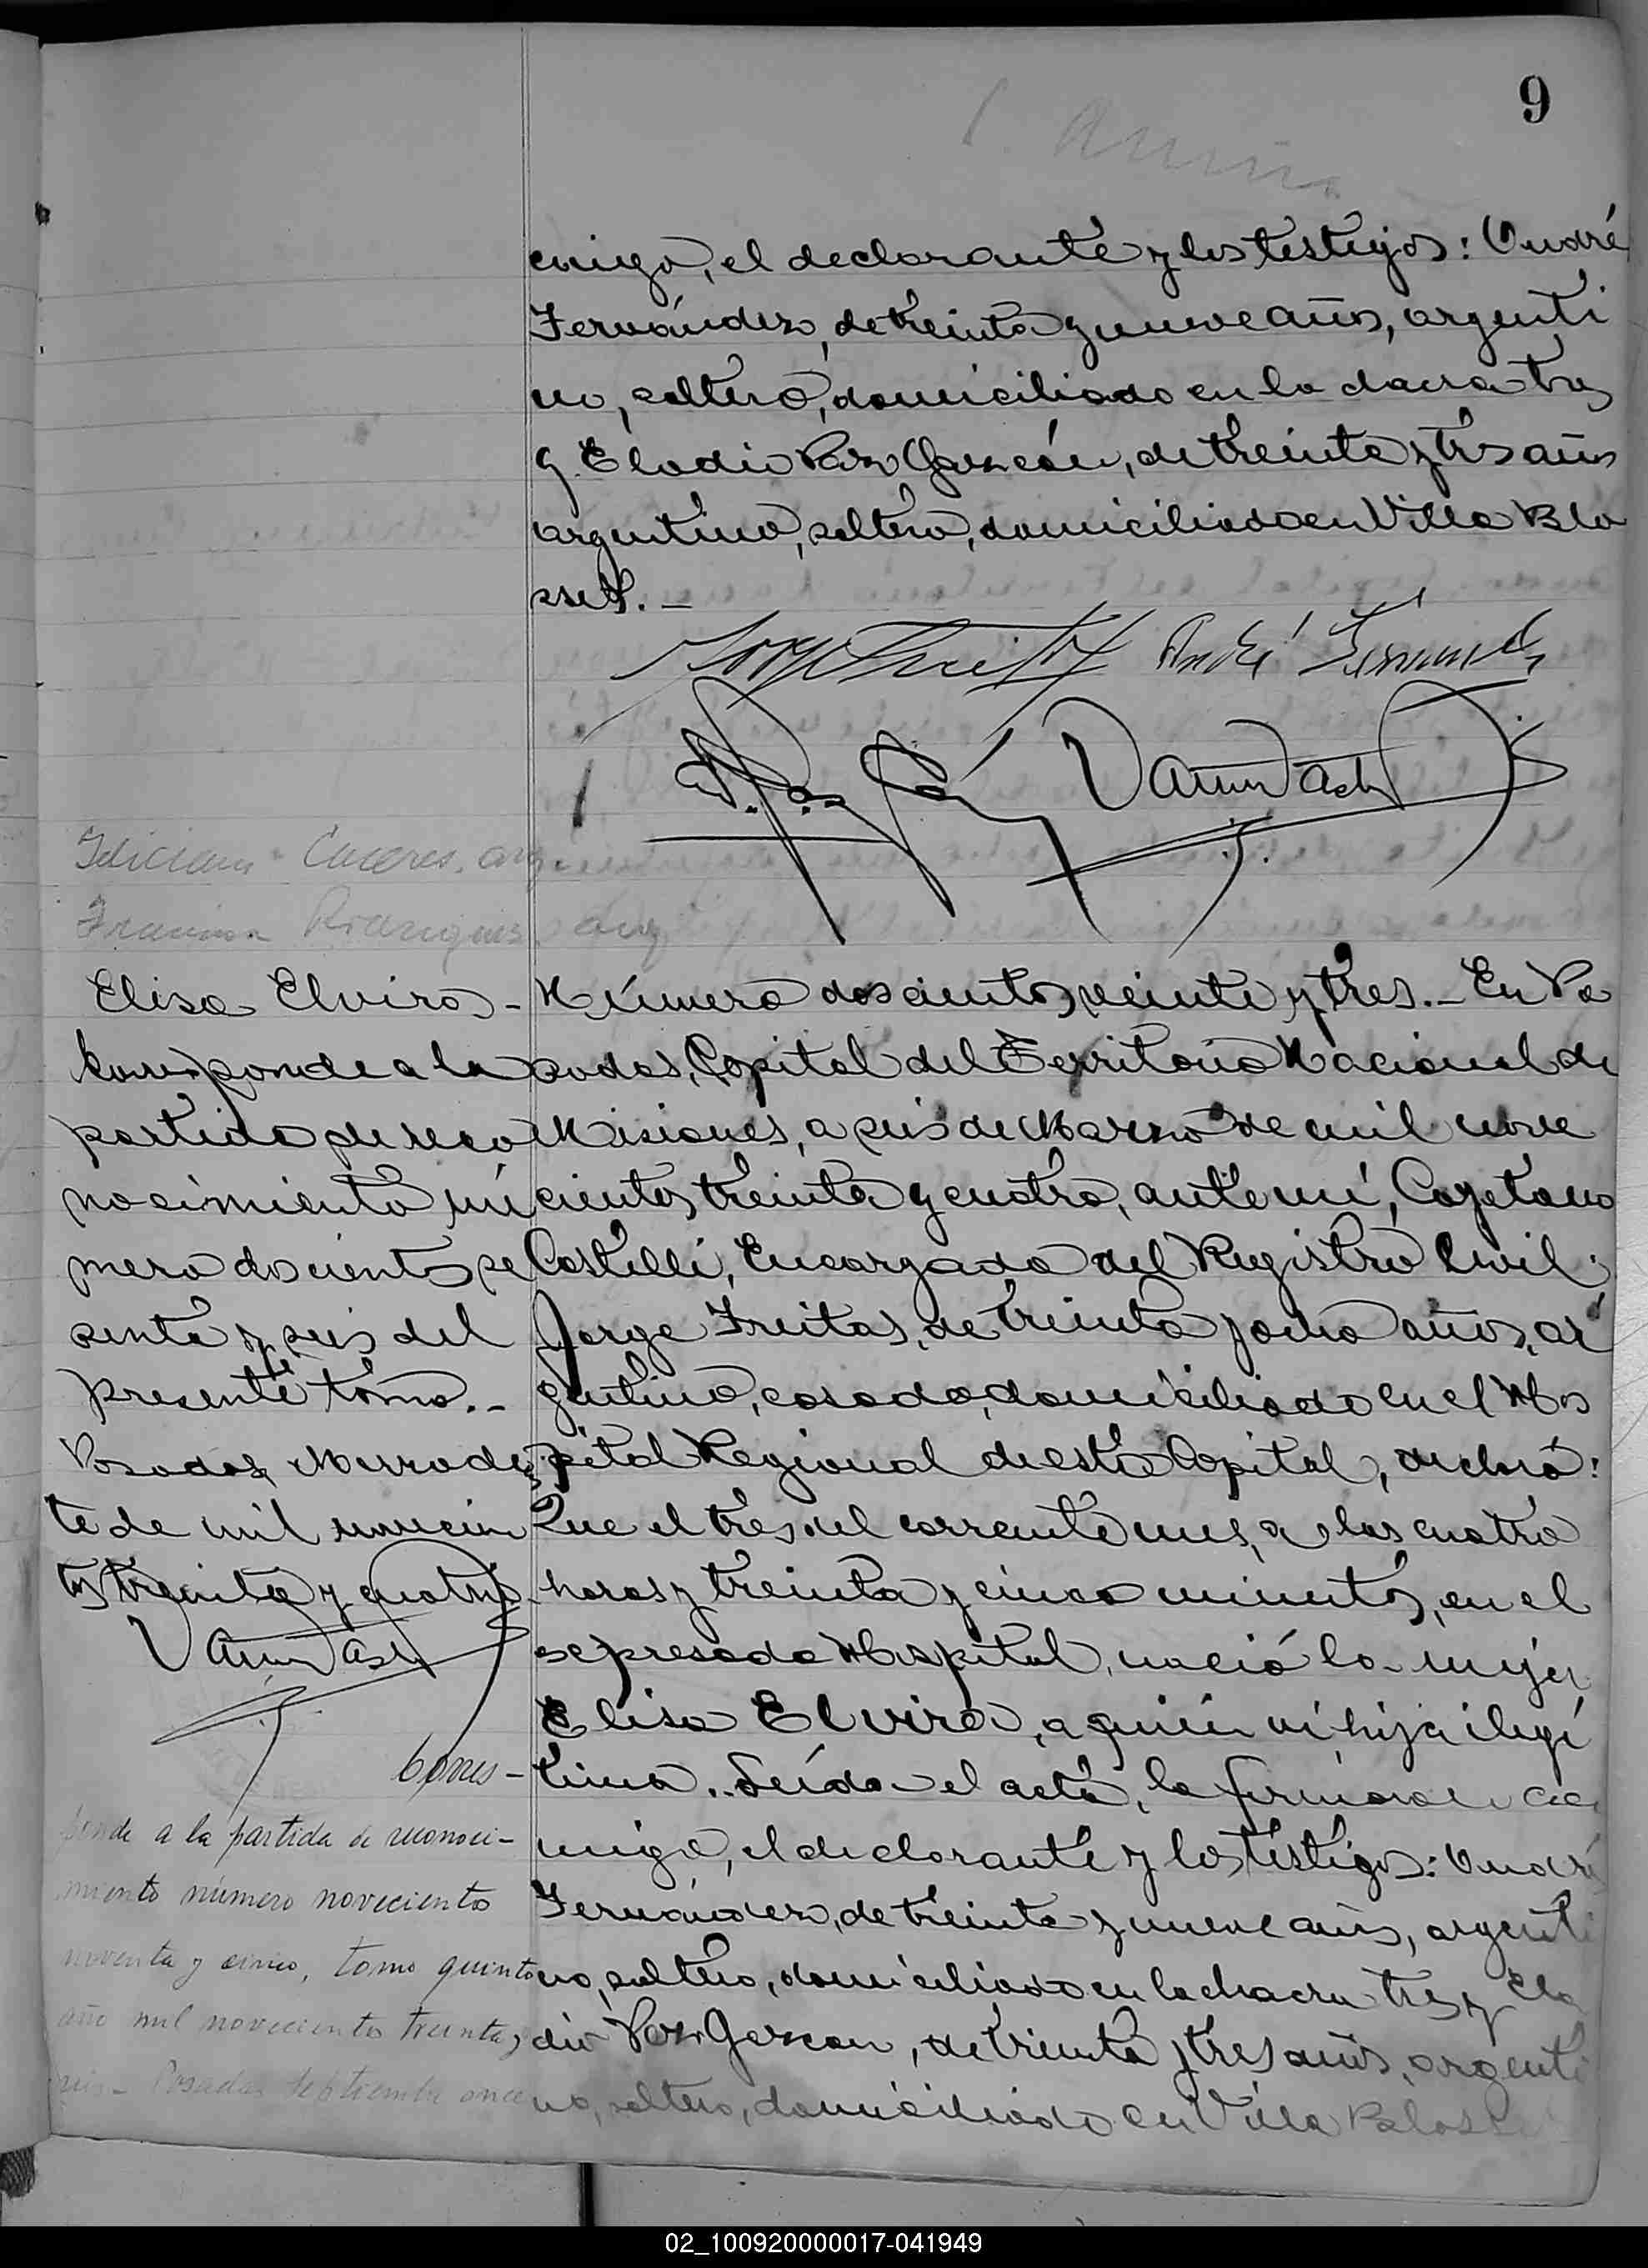 9
migo, el declarante y los testigos: André
Fernández, de treinta y nueve años, argenti
no, soltero, domiciliado en la chacra tres
y Eladio Paz Garzón, de treinta y tres años
argentino, soltero, domiciliado en Villa Blo
sset.-
André Fernández
Feliciano Caceres, arg
Rodriguez, arg
Elisa Elvira-
Corresponde a la
partida de reco
nocimiento nú
mero doscientos se
senta y seis del
presente tomo.-
Posadas, Marzo de
te de mil novecien
tos treinta y cuatro.
Número doscientos veinte y tres.- En Po
sadas, Capital del Territorio Nacional de
Misiones, a seis de Marzo de mil nove
cientos treinta y cuatro, ante mí, Cayetano
Castelli, Encargado del Registro Civil:
Jorge Freitas, de treinta y ocho años, ar
gentino, casado, domiciliado en el Hos
pital Regional de esta Capital, declaró:
Que el tres del corriente mes, a las cuatro
horas y treinta y cinco minutos, en el
expresado Hospital, nació la mujer
Elisa Elvira, a quien vi hija ilegí
tima. Leída el acta, la firmaron con
migo, el declarante y los testigos: André
Fernández, de treinta y nueve años, argenti
no, soltero, domiciliado en la chacra tres y Ela
dio Paz Garzon, de treinta y tres años, argenti
no, soltero, domiciliado en Villa Bloss
Corres-
ponde a la partida de reconoci-
miento número novecientos
noventa y cinco, tomo quinto
año mil novecientos treinta y
seis- Posadas Septiembre once
02_100920000017-041949